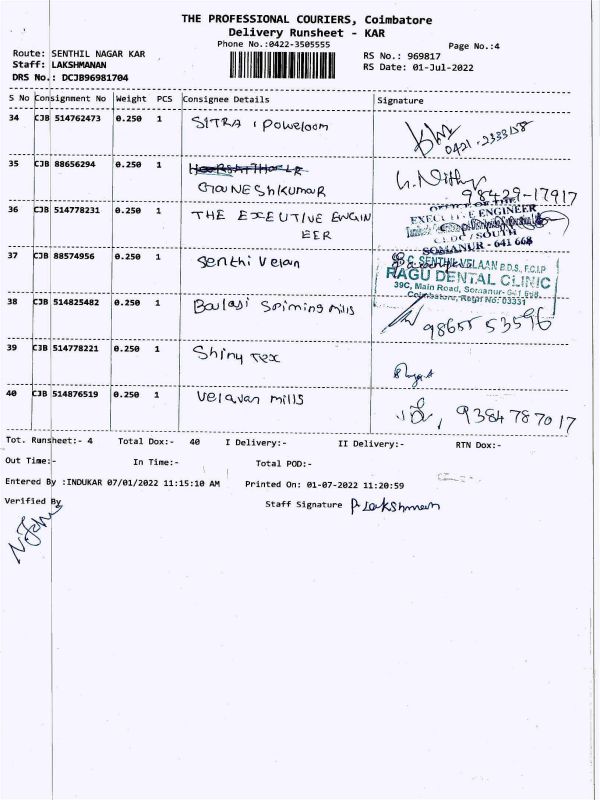 THE PROFESSIONAL COURIERS, Coimbatore
Delivery Runsheet - KAR
Phone No.:0422-3505555
Page No.:4
Route: SENTHIL NAGAR KAR
RS No.: 969817
Staff: LAKSHMANAN
RS Date: 01-Jul-2022
DRS No.: DCJB96981704
S No Consignment No Weight PCS Consignee Details Signature
34 CJB 514762473 0.250 1 SITRA Poweloom
0421-2333158
35 CJB 88656294 0.250 1
GANESHKUMAR
98429-17917
36 CJB 514778231 0.250 1 THE EXECUTIVE ENGIN
EER
OFFICE OF THE
EXECUTIVE ENGINEER
CEDC / SOUTH
SOMANUR - 641 668
37 CJB 88574956 0.250 1 Senthi Velan
C. SENTHIL VELAAN B.D.S., F.C.I.P
RAGU DENTAL CLINIC
39C, Main Road, Somanur-641 668,
Coimbatore, Regn No: 03331
38 CJB 514825482 0.250 1 Balaji Spining mills
98655 53596
39 CJB 514778221 0.250 1 Shiny Tex
40 CJB 514876519 0.250 1 Velavan mills
9384787017
Tot. Runsheet:- 4 Total Dox:- 40 I Delivery:- II Delivery:- RTN Dox:-
Out Time:- In Time:- Total POD:-
Entered By :INDUKAR 07/01/2022 11:15:10 AM Printed On: 01-07-2022 11:20:59
Verified By Staff Signature P. Lakshmanan